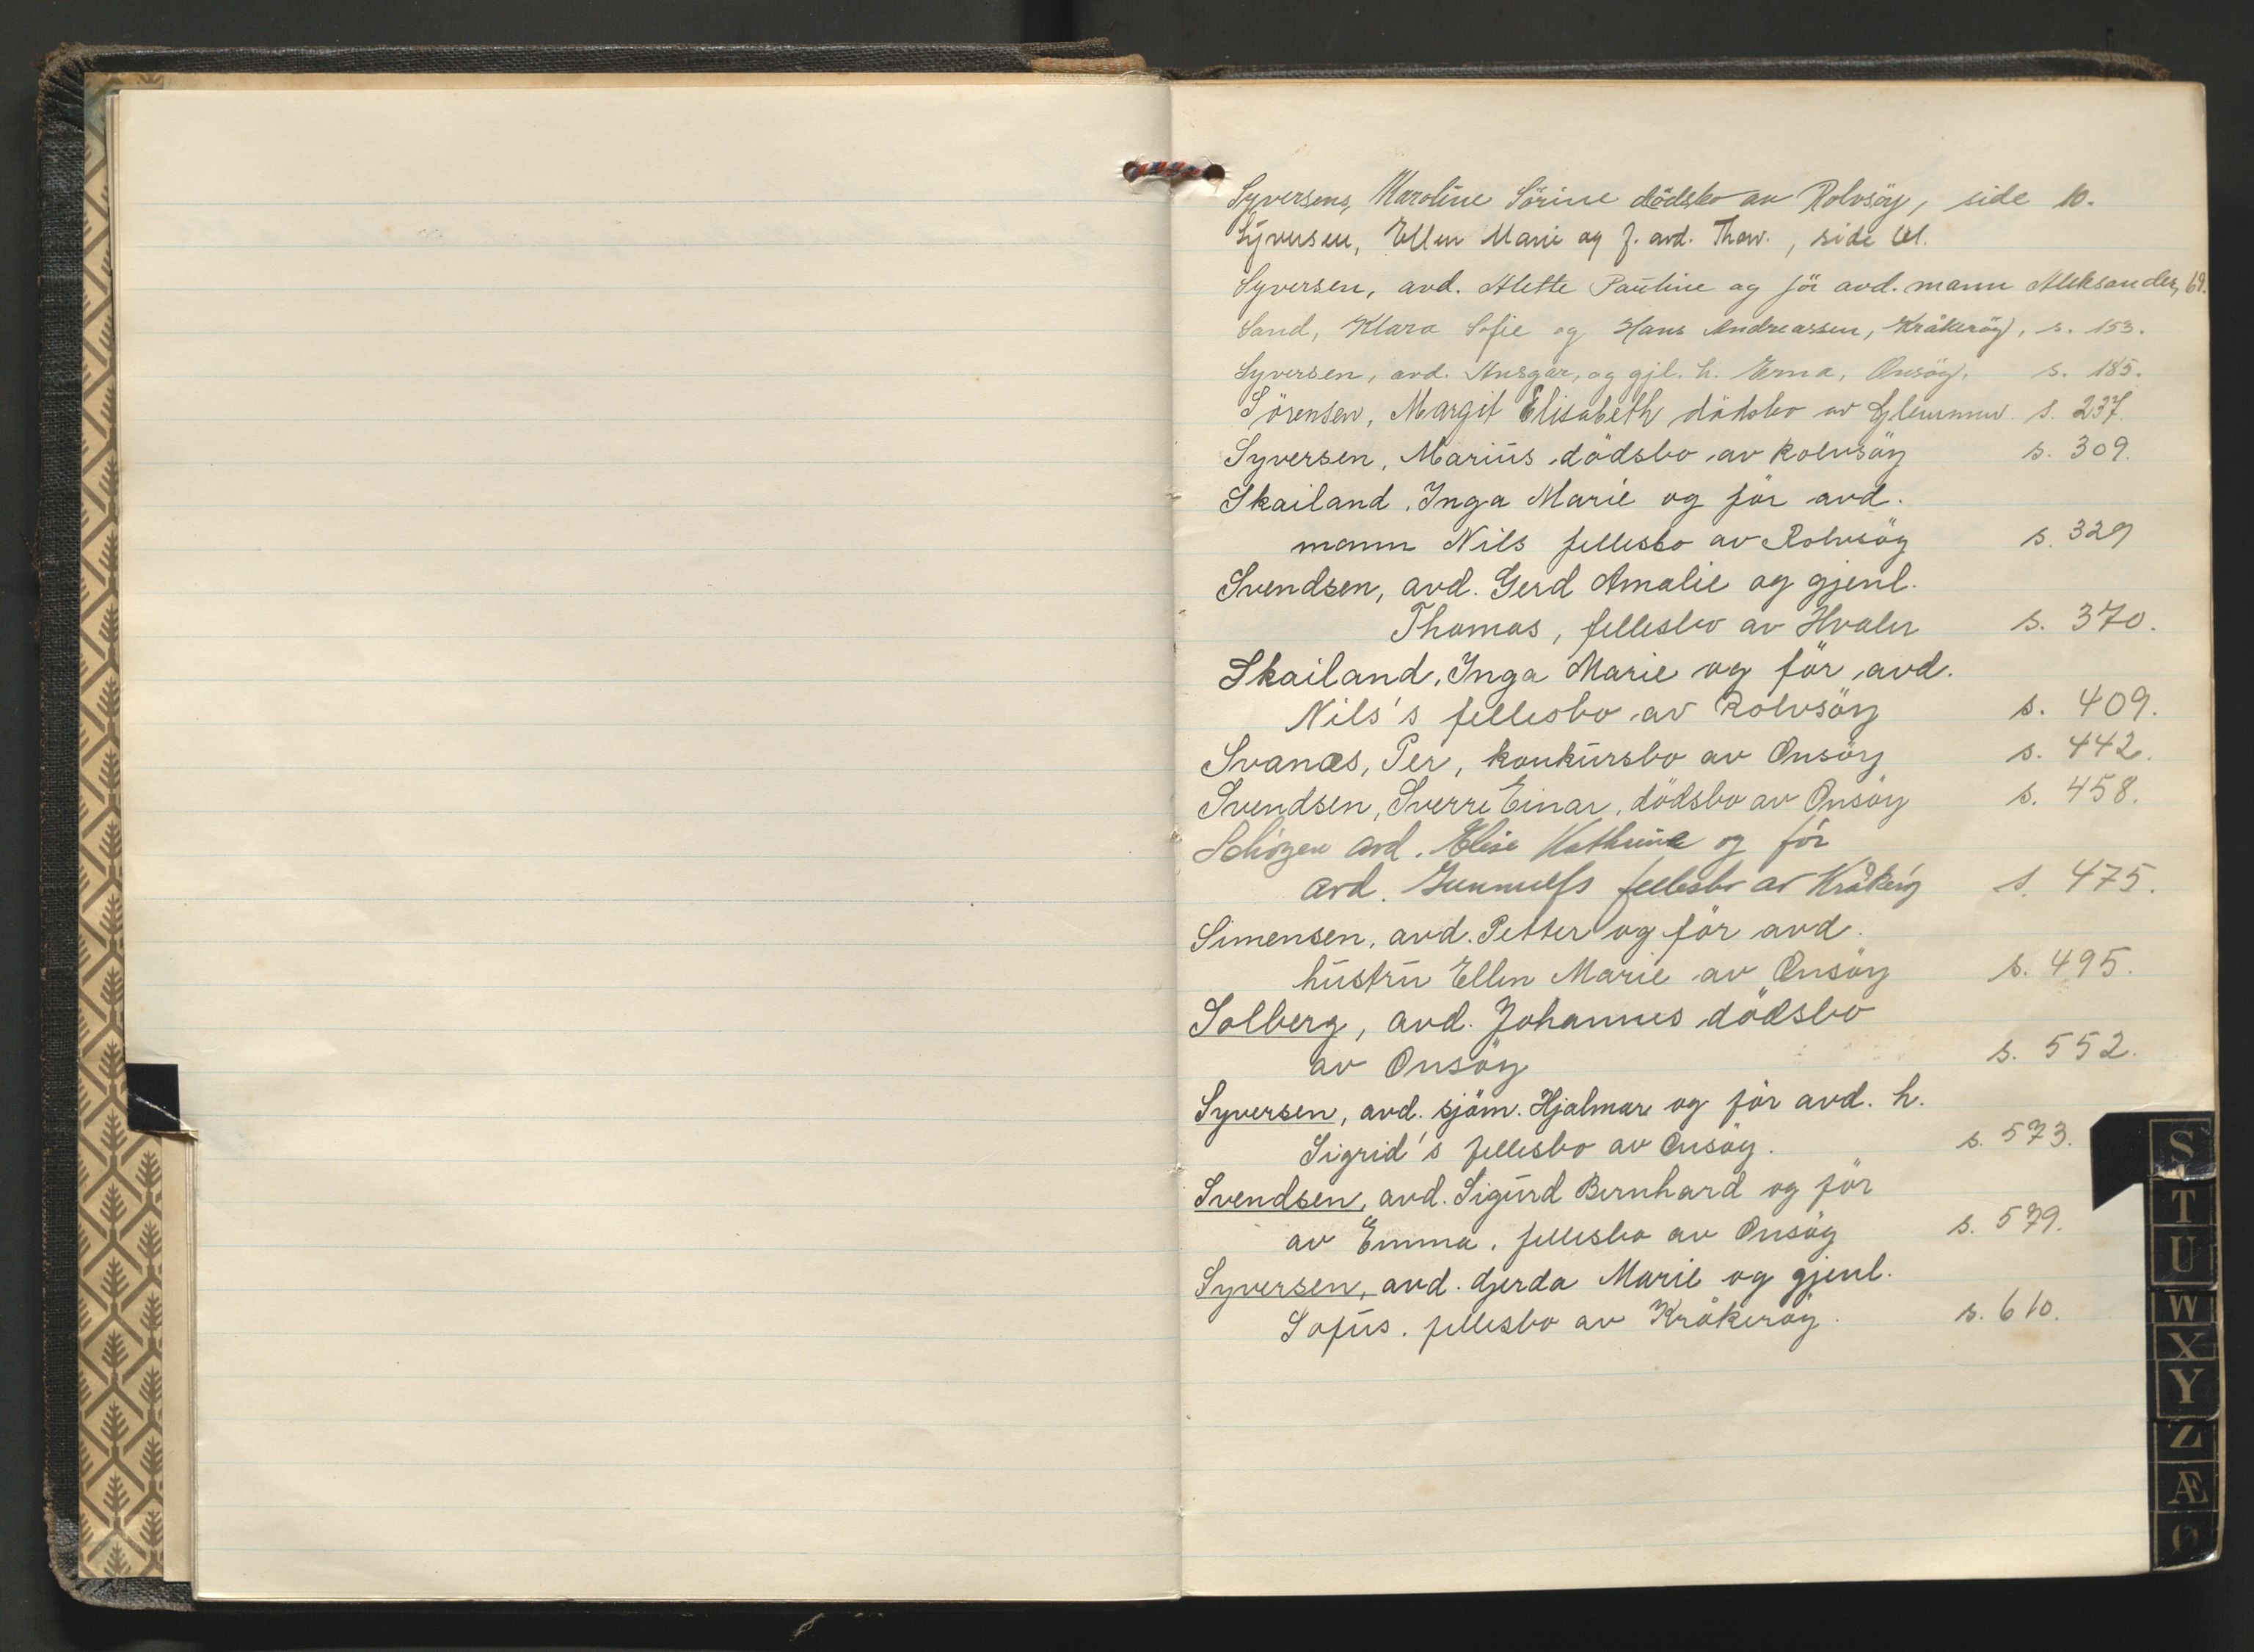 Syversens, Karoline Sörine dödsbo av Rolvsöy, side 10.
Syversen, Ellen Marie og f. avd. Thorv., side
Syversen, avd. Alette Pauline og för avd. mann Aleksander, 69.
Sand, Klara Sofie og Hans Andreassen, Kråkeröy, s. 153.
Syversen, avd. Ansgar, og gjl. h. Erna, Onsöy, s. 185.
Sörensen, Margit Elisabeth dödsbo av Glemmen s. 237.
Syversen, Marius dödsbo av Rolvsöy s. 309.
Skailand, Inga Marie og för avd.
mann Nils fellesbo av Rolvsöy s. 329
Svendsen, avd. Gerd Amalie og gjenl.
Thomas, fellesbo av Hvaler s. 370.
Skailand, Inga Marie og för avd.
Nils's fellesbo av Rolvsöy s. 409.
Svanæs, Per, konkursbo av Onsöy s. 442.
Svendsen, Sverre Einar, dödsbo av Onsöy s. 458.
avd. Elise Kathrine og för
avd. Gunnulfs fellesbo av Kråkeröy s. 475.
Simensen, avd. Petter og för avd.
hustru Ellen Marie av Onsöy s. 495.
Solberg, avd. Johannes dödsbo
av Onsöy s. 552.
Syversen, avd. sjöm. Hjalmar og för avd. h.
Sigrid's fellesbo av Onsöy. s. 573.
Svendsen, avd. Sigurd Bernhard og för
av Emma, fellesbo av Onsöy s. 579.
Syversen, avd. Gjerda Marie og gjenl.
Sofus. fellesbo av Kråkeröy. s. 610.
S
T
U
W
X
Y
Z
Æ
Ø